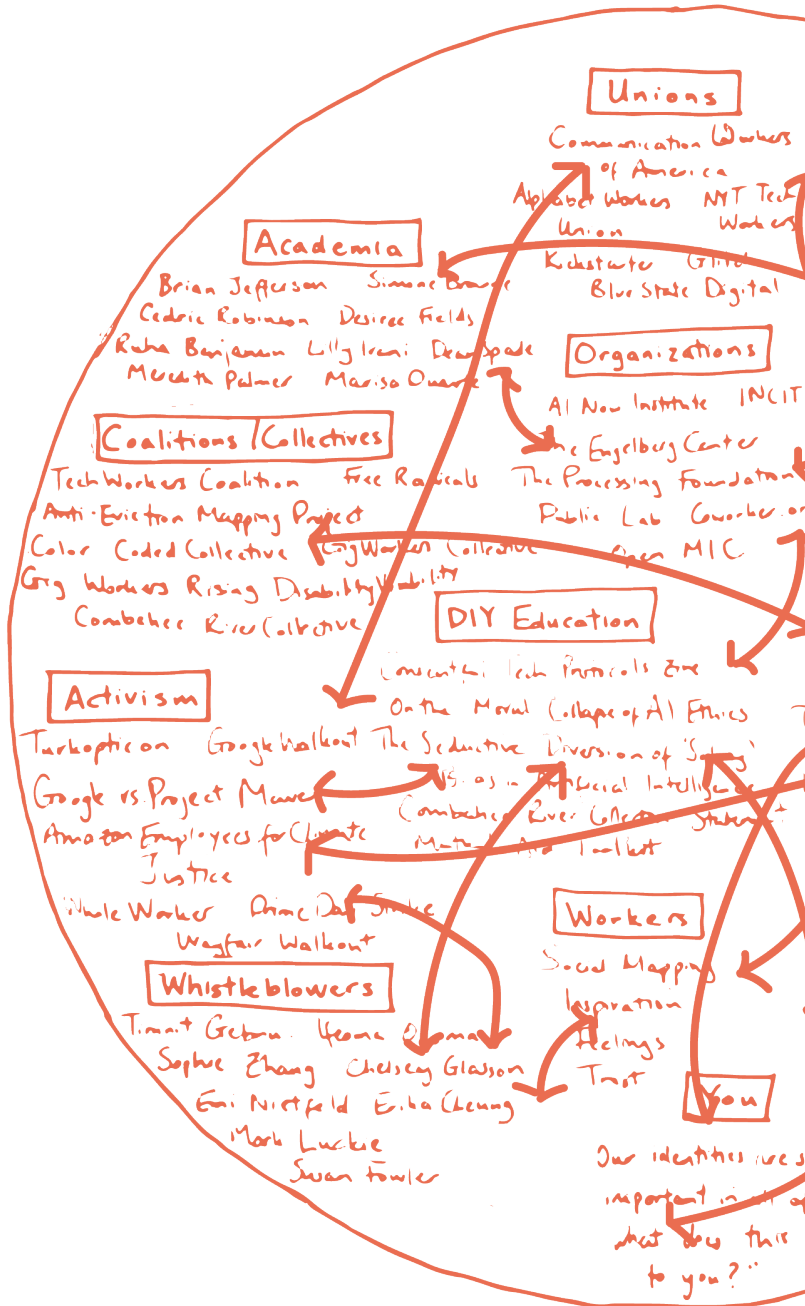 Unions
Communication Workers
of America
Alphabet Workers NYT Tech
Union Workers
Kickstarter Glitch
Blue State Digital
Academia
Brian Jefferson Simone Browne
Cedric Robinson Desiree Fields
Ruha Benjamin Lilly Irani Dean Spade
Meredith Palmer Marisa Duarte
Organizations
AI Now Institute INCIT
The Engelberg Center
The Processing Foundation
Public Lab Coworker.or
Open MIC
Coalitions/Collectives
Tech Workers Coalition Free Radicals
Anti-Eviction Mapping Project
Color Coded Collective Gig Workers Collective
Gig Workers Rising Disability Visibility
Combahee River Collective
DIY Education
Consentful Tech Protocols Zine
On the Moral Collapse of AI Ethics
The Seductive Diversion of 'Solving'
Bias in Artificial Intelligence
Combahee River Collective Statement
Mutual Aid Toolkit
Activism
Turkopticon Google Walkout
Google vs. Project Maven
Amazon Employees for Climate
Justice
Whole Worker Prime Day Strike
Wayfair Walkout
Workers
Social Mapping
Inspiration
Feelings
Trust
Whistleblowers
Timnit Gebru Ifeoma Ozoma
Sophie Zhang Chelsey Glasson
Emi Nietfeld Erika Cheung
Mark Luckie
Susan Fowler
You
Our identities are s
important in all of
what does this
to you?"